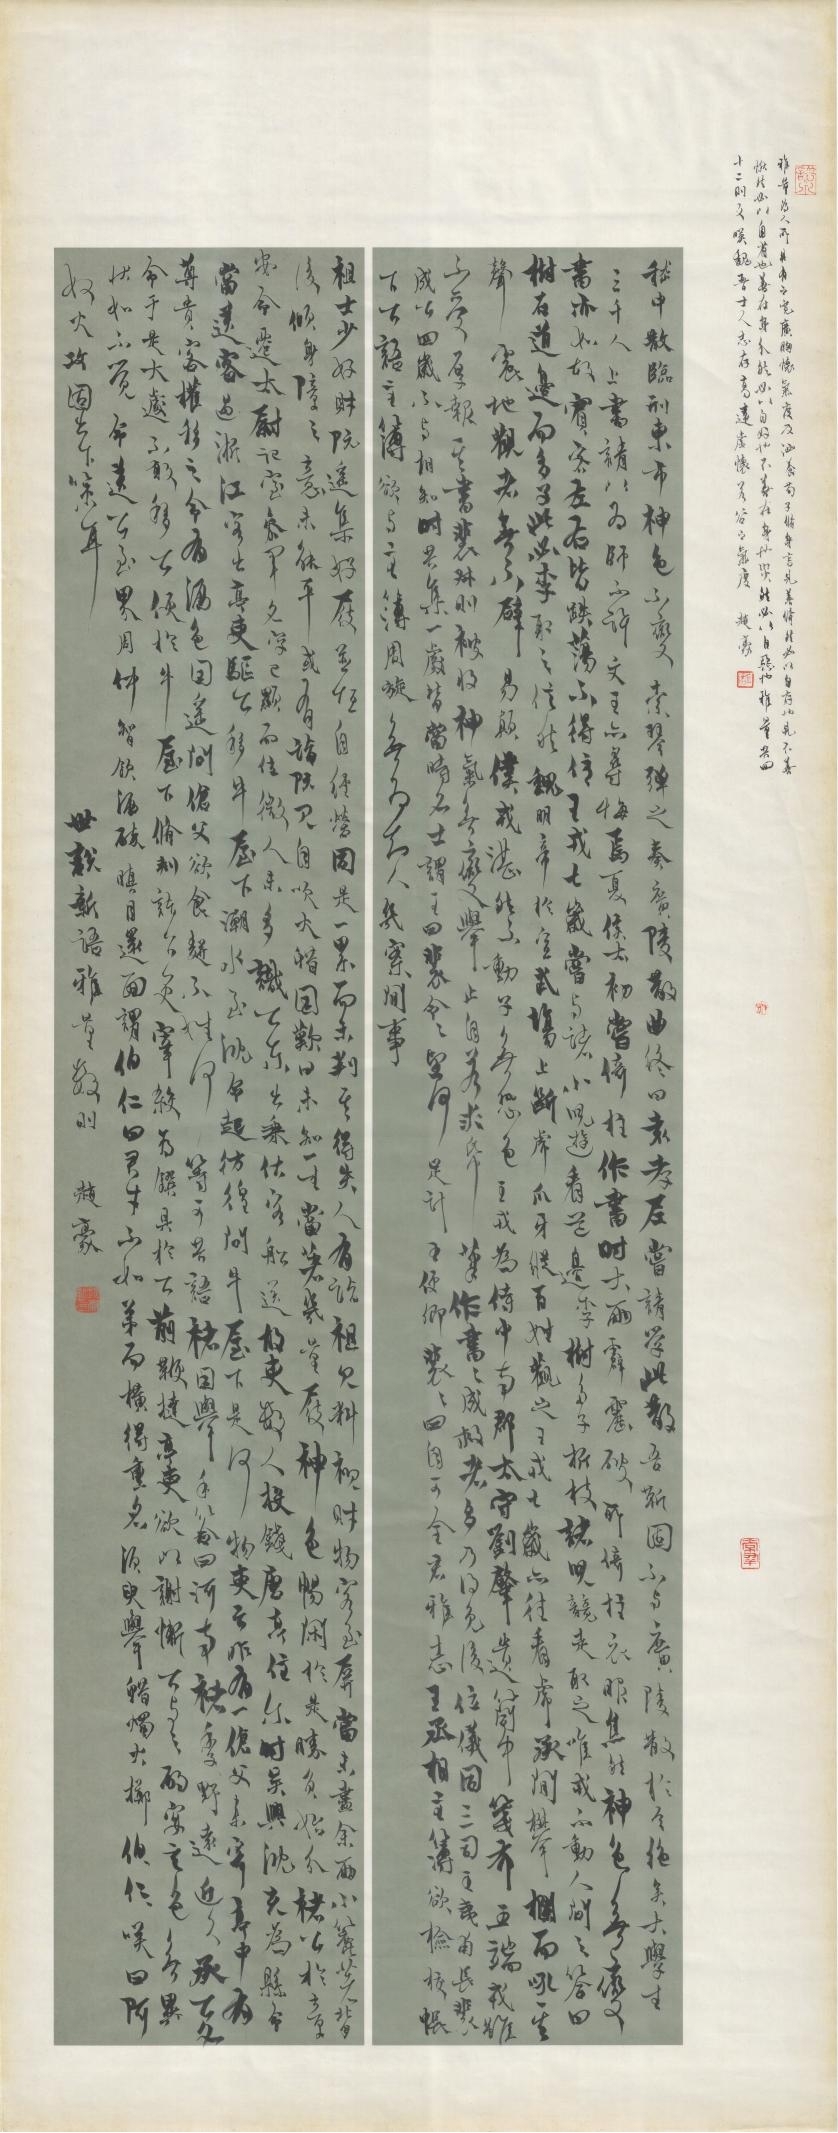 雅量為人所具有之寬廣胸懷氣度及涵養荀子脩身言見善脩然必以自存也見不善
愀然必以自省也善在身介然必以自好也不善在身也菑然必以自惡也雅量共四
十二則反映魏晉士人志存高遠虛懷若谷之氣度 趙豪
嵇中散臨刑東市神色不變索琴彈之奏廣陵散曲終曰袁孝尼嘗請學此散吾靳固不與廣陵散於今絕矣大學生
三千人上書請以為師不許文王亦尋悔焉夏侯太初嘗倚柱作書時大雨霹靂破所倚柱衣服焦然神色無變
書亦如故賓客左右皆跌蕩不得住王戎七歲嘗與諸小兒遊看道邊李樹多子折枝諸兒競走取之唯戎不動人問之答曰
樹在道邊而多子此必李取之信然魏明帝於宣武場上斷虎爪牙縱百姓觀之王戎七歲亦往看虎承間攀欄而吼其
聲震地觀者無不辟易顛僕戎湛然不動了無恐色王戎為侍中南郡太守劉肇遺筒中箋布五端戎雖
不受厚報其書裴叔則被收神氣無變舉止自若求紙筆作書書成救者多乃得免後位儀同三司王夷甫長裴
成公四歲不與相知時共集一處皆當時名士謂王曰裴令令望何足計王便卿裴裴曰自可全君雅志王丞相主簿欲檢校帳
下公語主簿欲與主簿周旋無為知人几案間事
祖士少好財阮遙集好屐並恒自經營同是一累而未判其得失人有詣祖見料視財物客至屏當未盡余兩小簏著背
後傾身障之意未能平或有詣阮見自吹火蠟因歎曰未知一生當著幾量屐神色暢閑於是勝負始分褚公於章
安令遷太尉記室參軍名字已顯而位微人未多識公東出乘估客船送故吏數人投錢唐亭住爾時吳興沈充為縣令
當送客過浙江客出亭吏驅公移牛屋下潮水至沈令起彷徨問牛屋下是何物吏云昨有一傖父來寄亭中有
尊貴客權移之令有酒色因遙問傖父欲食麩不姓何等可共語褚因舉手答曰河南褚季野遠近久承公名
令于是大遽不敢移公便於牛屋下脩刺詣公更宰殺為饌具於公前鞭撻亭吏欲以謝慚公與之酌宴言色無異
狀如不覺令送公至界周仲智飲酒醉瞋目還面謂伯仁曰君才不如弟而橫得重名須臾舉蠟燭火擲伯仁笑曰阿
奴火攻固出下策耳
世說新語雅量數則 趙豪